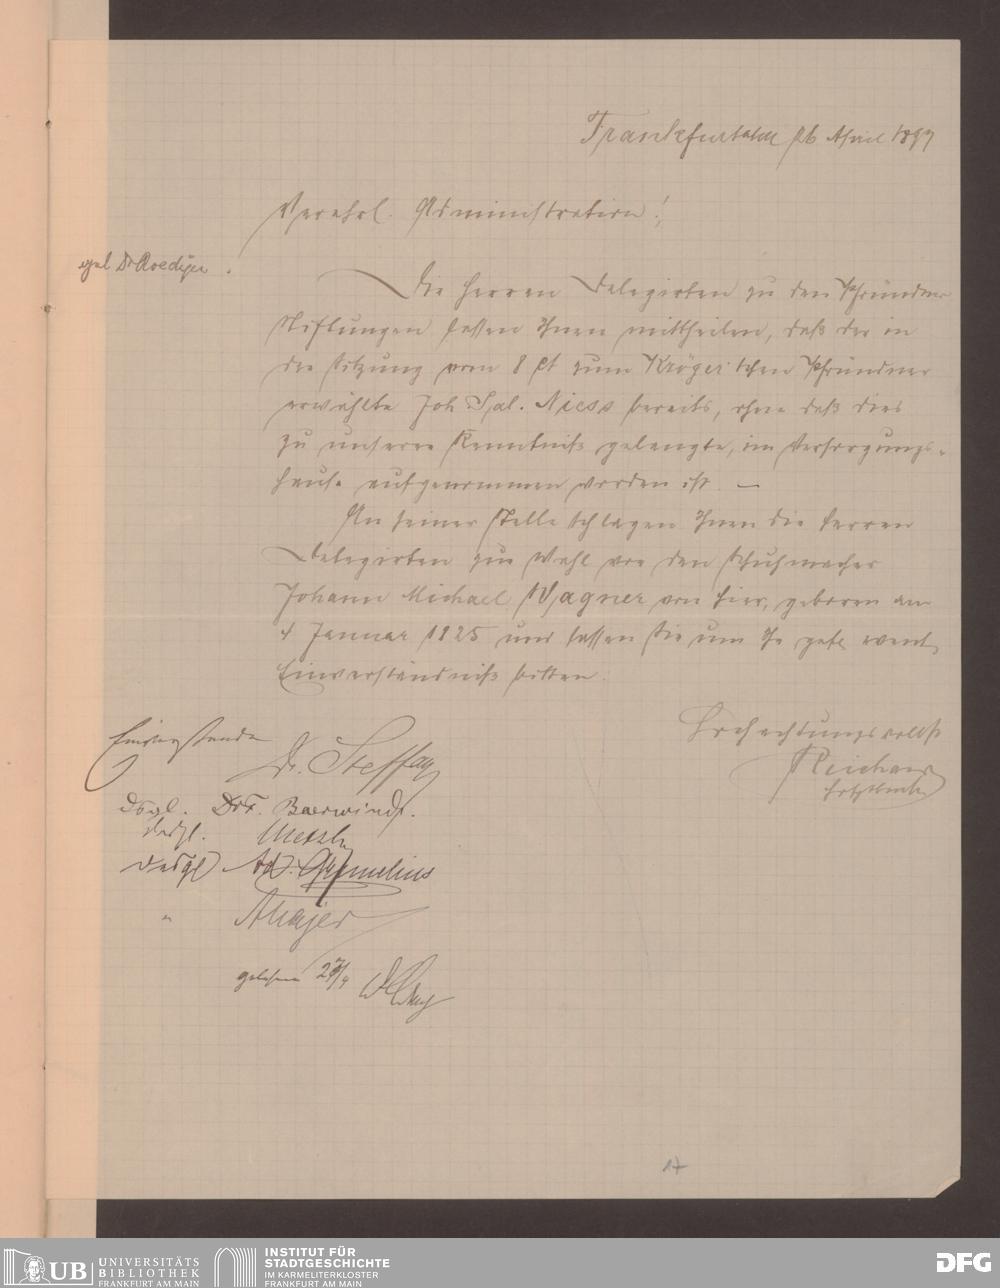 Frankfurt a/M 26 April 1897
Verehrl. Administration!
gel Dr Roediger
Die Herren Delegirten zu den Pfründner
Stiftungen lassen Ihnen mittheilen, daß der in
der Sitzung vom 8 ct zum Kröger'schen Pfründner
erwählte Joh Sal. Niess bereits, ohne daß dies
zu unserer Kenntniß gelangte, im Versorgungs-
hause aufgenommen worden ist. —
An seiner Stelle schlagen Ihnen die Herren
Delegirten zur Wahl vor den Schuhmacher
Johann Michael Wagner von hier, geboren am
4 Januar 1825 und lassen Sie um Ihr gefl event
Einverständniß bitten.
Hochachtungsvollst
Reichard
Einverstanden
Dr. Steffan
Dsgl. Dr F. Baerwindt.
desgl. Metzler
desgl Ad. Grunelius
" A Majer
gelesen 27/4
17
UB UNIVERSITÄTS
BIBLIOTHEK
FRANKFURT AM MAIN
INSTITUT FÜR
STADTGESCHICHTE
IM KARMELITERKLOSTER
FRANKFURT AM MAIN
DFG